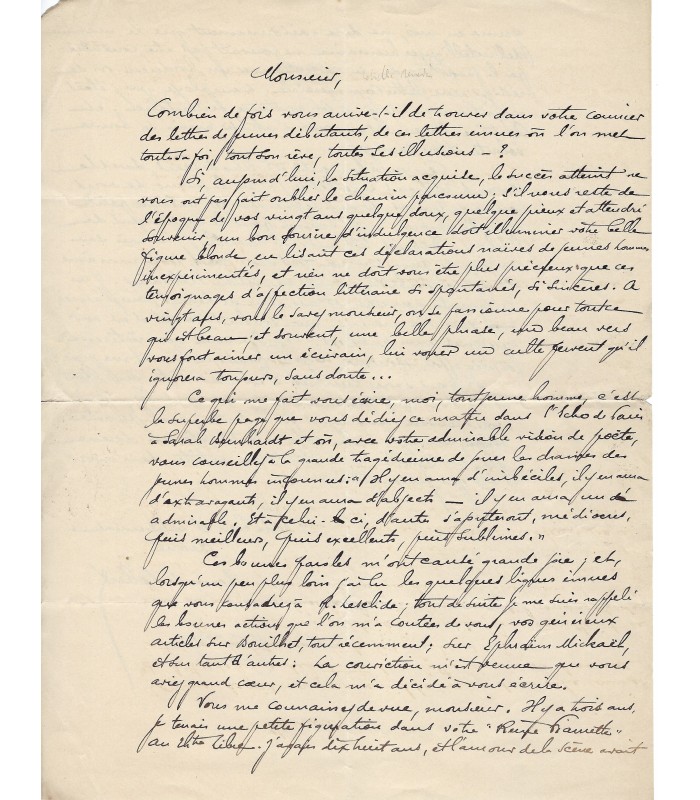 Monsieur,
Combien de fois vous arrive-t-il de trouver dans votre courrier
des lettres de jeunes débutants, de ces lettres émues où l'on met
toute sa foi, tout son rêve, toutes ses illusions — ?
Si, aujourd'hui, la situation acquise, le succès atteint ne
vous ont pas fait oublier le chemin parcouru ; s'il vous reste de
l'époque de vos vingt ans quelque doux, quelque pieux et attendri
souvenir, un bon sourire d'indulgence doit illuminer votre belle
figure blonde, en lisant ces déclarations naïves de jeunes hommes
inexpérimentés, et rien ne doit vous être plus précieux que ces
témoignages d'affection littéraire si spontanés, si sincères. A
vingt ans, vous le savez monsieur, on se passionne pour tout ce
qui est beau ; et souvent, une belle phrase, un beau vers
vous font aimer un écrivain, lui vouer un culte fervent qu'il
ignorera toujours, sans doute...
Ce qui me fait vous écrire, moi, tout jeune homme, c'est
la superbe page que vous dédiez ce matin dans l'Echo de Paris
à Sarah Bernhardt et où, avec votre admirable vision de poète,
vous conseillez à la grande tragédienne de jouer les drames des
jeunes hommes inconnus : « Il y en aura d'imbéciles, il y en aura
d'extravagants, il y en aura d'abjects — il y en aura un
admirable. Et à celui-ci, d'autres s'ajouteront, médiocres,
puis meilleurs, puis excellents, puis sublimes. »
Ces bonnes paroles m'ont causé grande joie ; et,
lorsqu'un peu plus loin j'ai lu les quelques lignes émues
que vous consacrez à R. Lesclide ; tout de suite je me suis rappelé
les bonnes actions que l'on m'a contées de vous, vos généreux
articles sur Bouilhet, tout récemment ; sur Ephraïm Mickaël,
et sur tant d'autres : La conviction m'est venue que vous
aviez grand cœur, et cela m'a décidé à vous écrire.
Vous me connaissez de vue, monsieur. Il y a trois ans,
je tenais une petite figuration dans votre "Reine Fiammette"
au Thtre Libre. J'avais dix huit ans, et l'amour de la scène avait